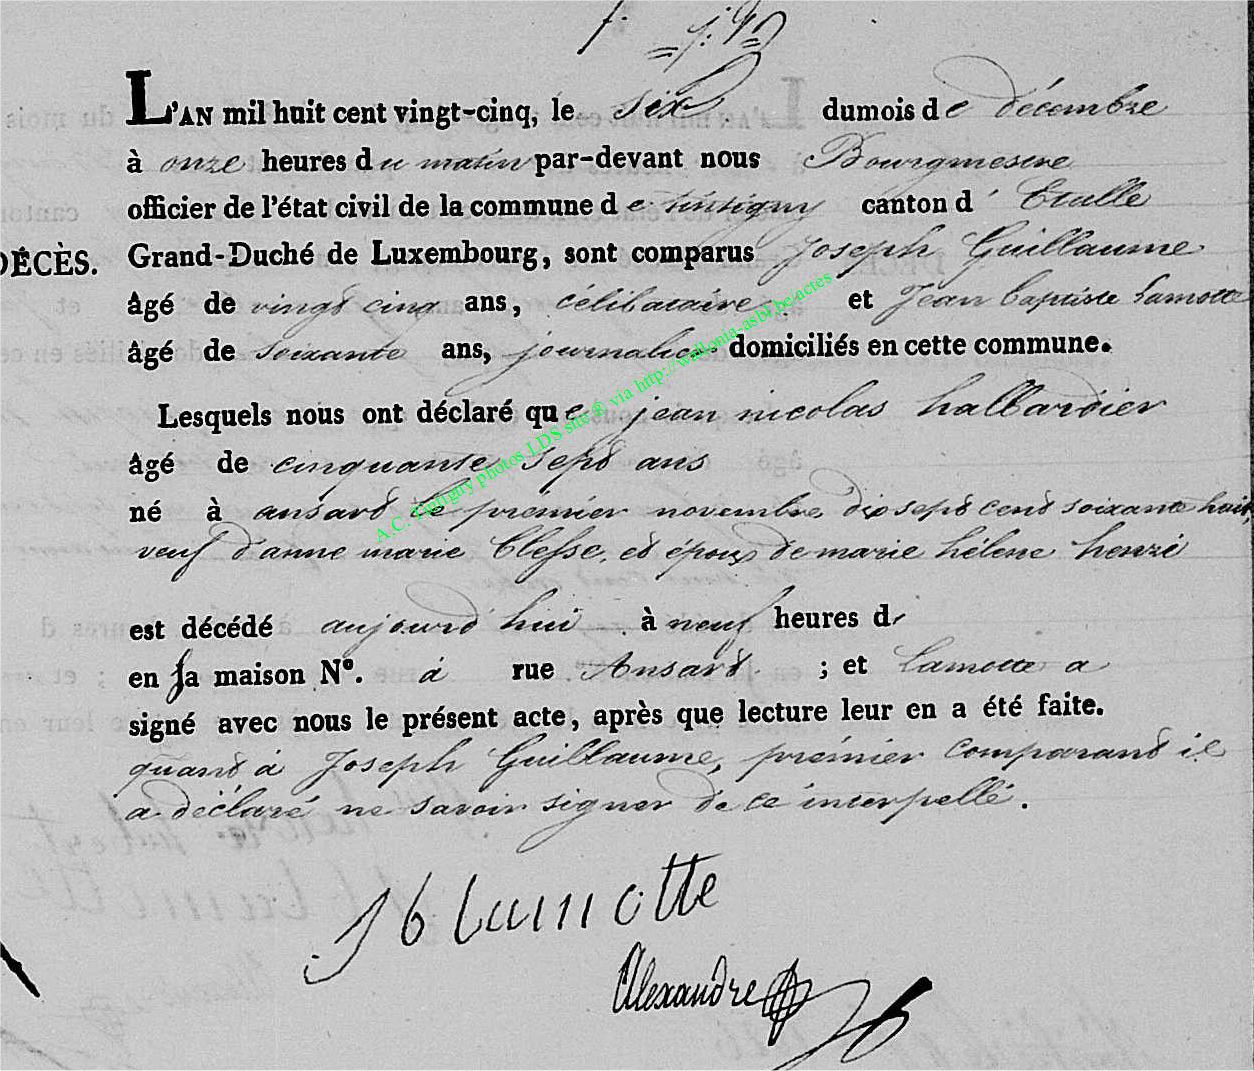 L'AN mil huit cent vingt-cinq, le six du mois de décembre
à onze heures du matin par-devant nous Bourgmestre
officier de l'état civil de la commune de tintigny canton d' Etalle
DÉCÈS. Grand-Duché de Luxembourg, sont comparus Joseph Guillaume
âgé de vingt cinq ans, célibataire et Jean baptiste Lamotte
âgé de soixante ans, journalier domiciliés en cette commune.
Lesquels nous ont déclaré que jean nicolas hallardier
âgé de cinquante sept ans
né à ansart le premier novembre dix sept cent soixante huit,
veuf d'anne marie Clesse, et époux de marie hélene henri
est décédé aujourd'hui à neuf heures d
en sa maison N°. à rue Ansart ; et Lamotte a
signé avec nous le présent acte, après que lecture leur en a été faite.
quant à Joseph Guillaume, prémier comparant il
a déclaré ne savoir signer de ce interpellé.
J b lamotte
Alexandre
A.C. Tintigny photos LDS site® via http://wallonia-asbl.be/actes